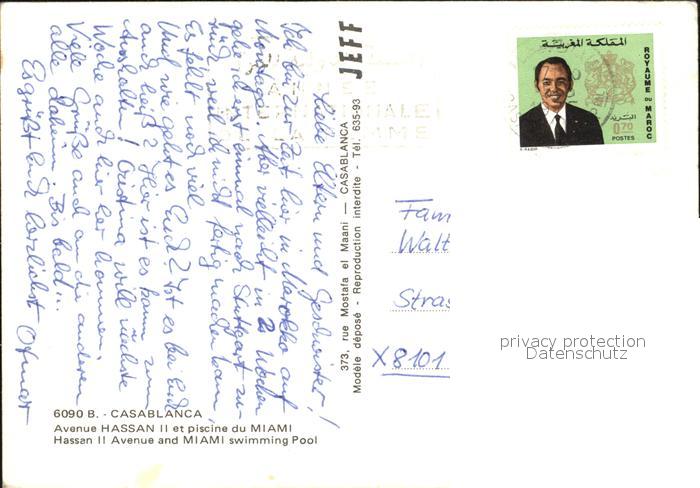 Liebe Eltern und Geschwister!
Ich bin zur Zeit hier in Marokko auf
Montage. Aber vielleicht in 2 Wochen
gehe ich erst einmal nach Stuttgart zu-
rück weil ich nicht fertig werden kann,
Es fehlt noch viel.
Und wie geht es Euch? Ist es bei Euch
auch heiß? Hier ist es kaum zum
Aushalten! Christina will nächste
Woche auch hier her kommen.
Viele Grüße auch an die anderen
alle daheim. Bis bald...
Es grüßt Euch herzlichst Otmar
6090 B. - CASABLANCA
Avenue HASSAN II et piscine du MIAMI
Hassan II Avenue and MIAMI swimming Pool
JEFF
373, rue Mostafa el Maani — CASABLANCA
Modèle déposé - Reproduction interdite - Tél. 635-93
المملكة المغربية
ROYAUME DU MAROC
البريد
0,70
POSTES
Fam
Walt
Stras
X8101
privacy protection
Datenschutz